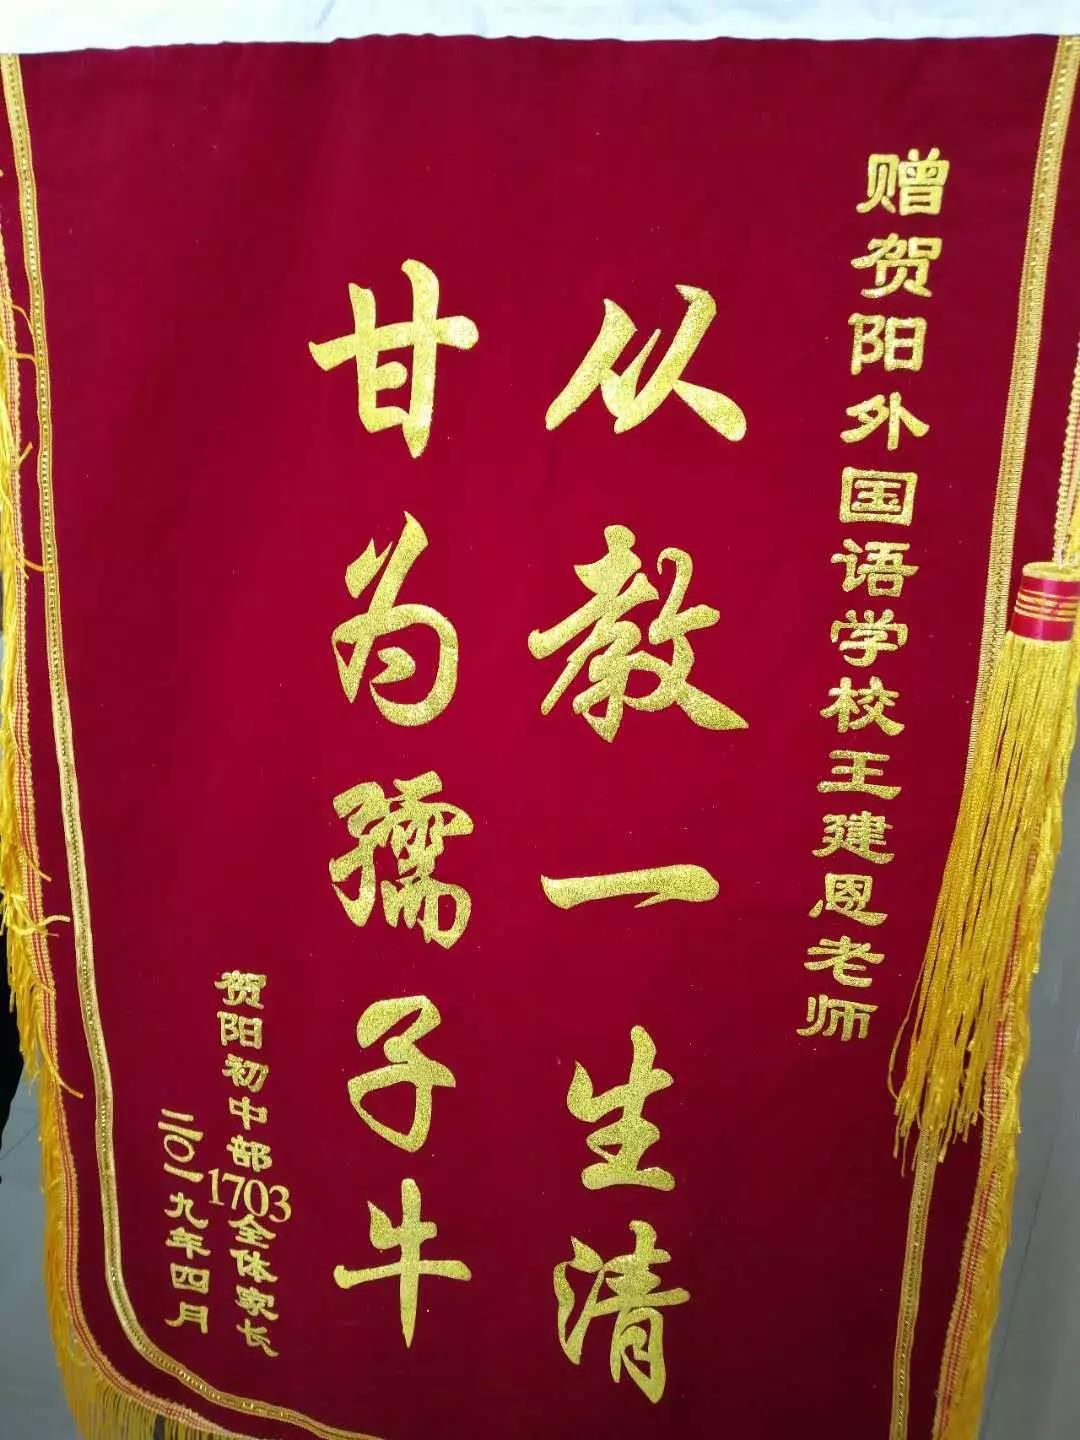 赠贺阳外国语学校王建恩老师
从教一生清
甘为孺子牛
贺阳初中部1703全体家长
二〇一九年四月